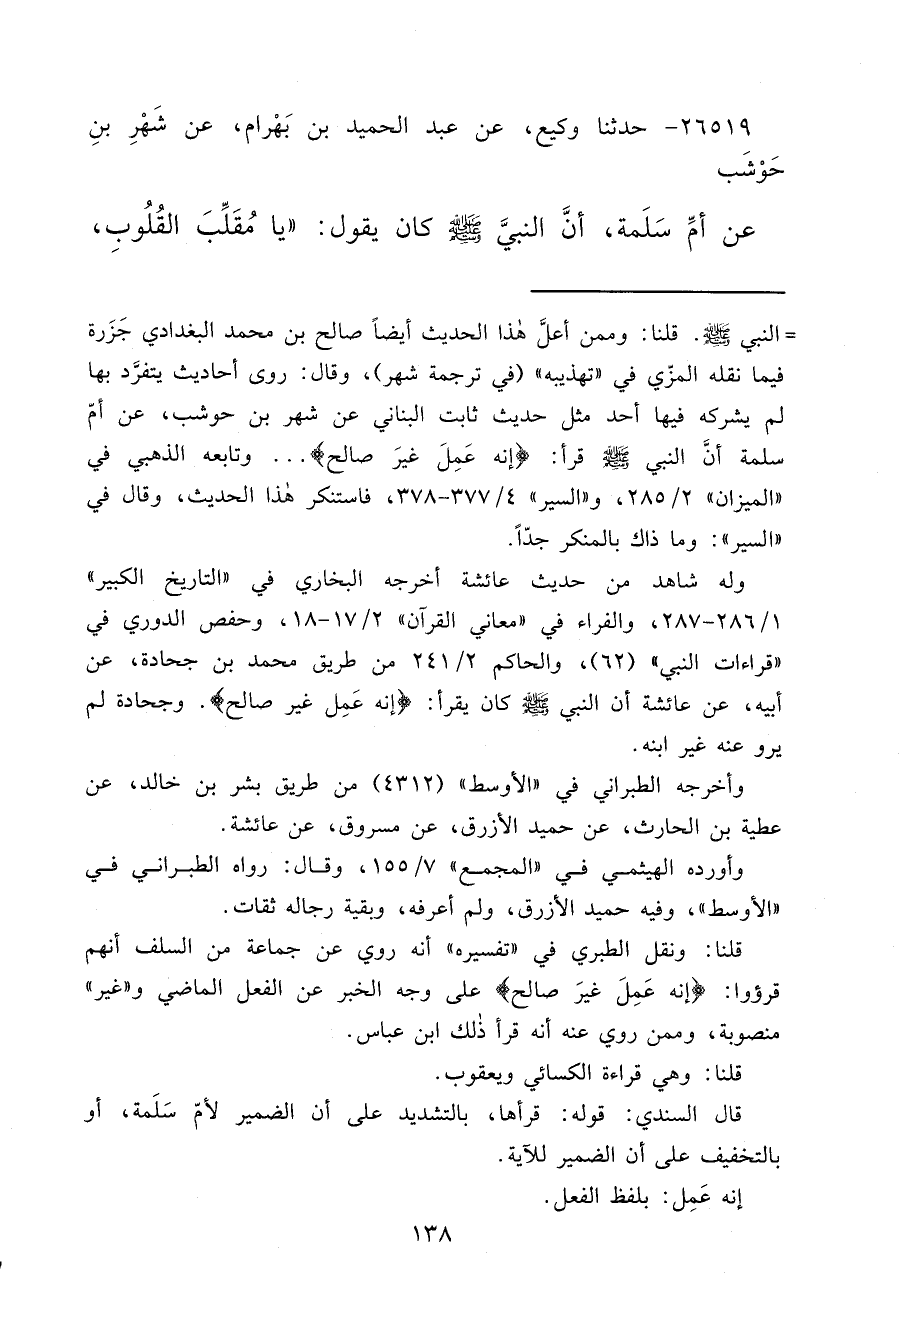 ٢٦٥١٩- حدثنا وكيع، عن عبد الحميد بن بَهْرام، عن شَهْرِ بنِ
حَوْشَب
عن أمِّ سَلَمة، أنَّ النبيَّ ﷺ كان يقول: «يا مُقَلِّبَ القُلُوبِ،
= النبي ﷺ. قلنا: وممن أعلَّ هٰذا الحديث أيضاً صالح بن محمد البغدادي جَزَرة
فيما نقله المزّي في «تهذيبه» (في ترجمة شهر)، وقال: روى أحاديث يتفرَّد بها
لم يشركه فيها أحد مثل حديث ثابت البناني عن شهر بن حوشب، عن أمّ
سلمة أنَّ النبي ﷺ قرأ: ﴿إنه عَمِلَ غيرَ صالح﴾... وتابعه الذهبي في
«الميزان» ٢/ ٢٨٥، و«السير» ٤/ ٣٧٧-٣٧٨، فاستنكر هٰذا الحديث، وقال في
«السير»: وما ذاك بالمنكر جدّاً.
وله شاهد من حديث عائشة أخرجه البخاري في «التاريخ الكبير»
١/ ٢٨٦-٢٨٧، والفراء في «معاني القرآن» ٢/ ١٧-١٨، وحفص الدوري في
«قراءات النبي» (٦٢)، والحاكم ٢/ ٢٤١ من طريق محمد بن جحادة، عن
أبيه، عن عائشة أن النبي ﷺ كان يقرأ: ﴿إنه عَمِل غير صالح﴾. وجحادة لم
يرو عنه غير ابنه.
وأخرجه الطبراني في «الأوسط» (٤٣١٢) من طريق بشر بن خالد، عن
عطية بن الحارث، عن حميد الأزرق، عن مسروق، عن عائشة.
وأورده الهيثمي في «المجمع» ٧/ ١٥٥، وقال: رواه الطبراني في
«الأوسط»، وفيه حميد الأزرق، ولم أعرفه، وبقية رجاله ثقات.
قلنا: ونقل الطبري في «تفسيره» أنه روي عن جماعة من السلف أنهم
قرؤوا: ﴿إنه عَمِلَ غيرَ صالح﴾ على وجه الخبر عن الفعل الماضي و«غير»
منصوبة، وممن روي عنه أنه قرأ ذٰلك ابن عباس.
قلنا: وهي قراءة الكسائي ويعقوب.
قال السندي: قوله: قرأها، بالتشديد على أن الضمير لأمّ سَلَمة، أو
بالتخفيف على أن الضمير للآية.
إنه عَمِل: بلفظ الفعل.
١٣٨